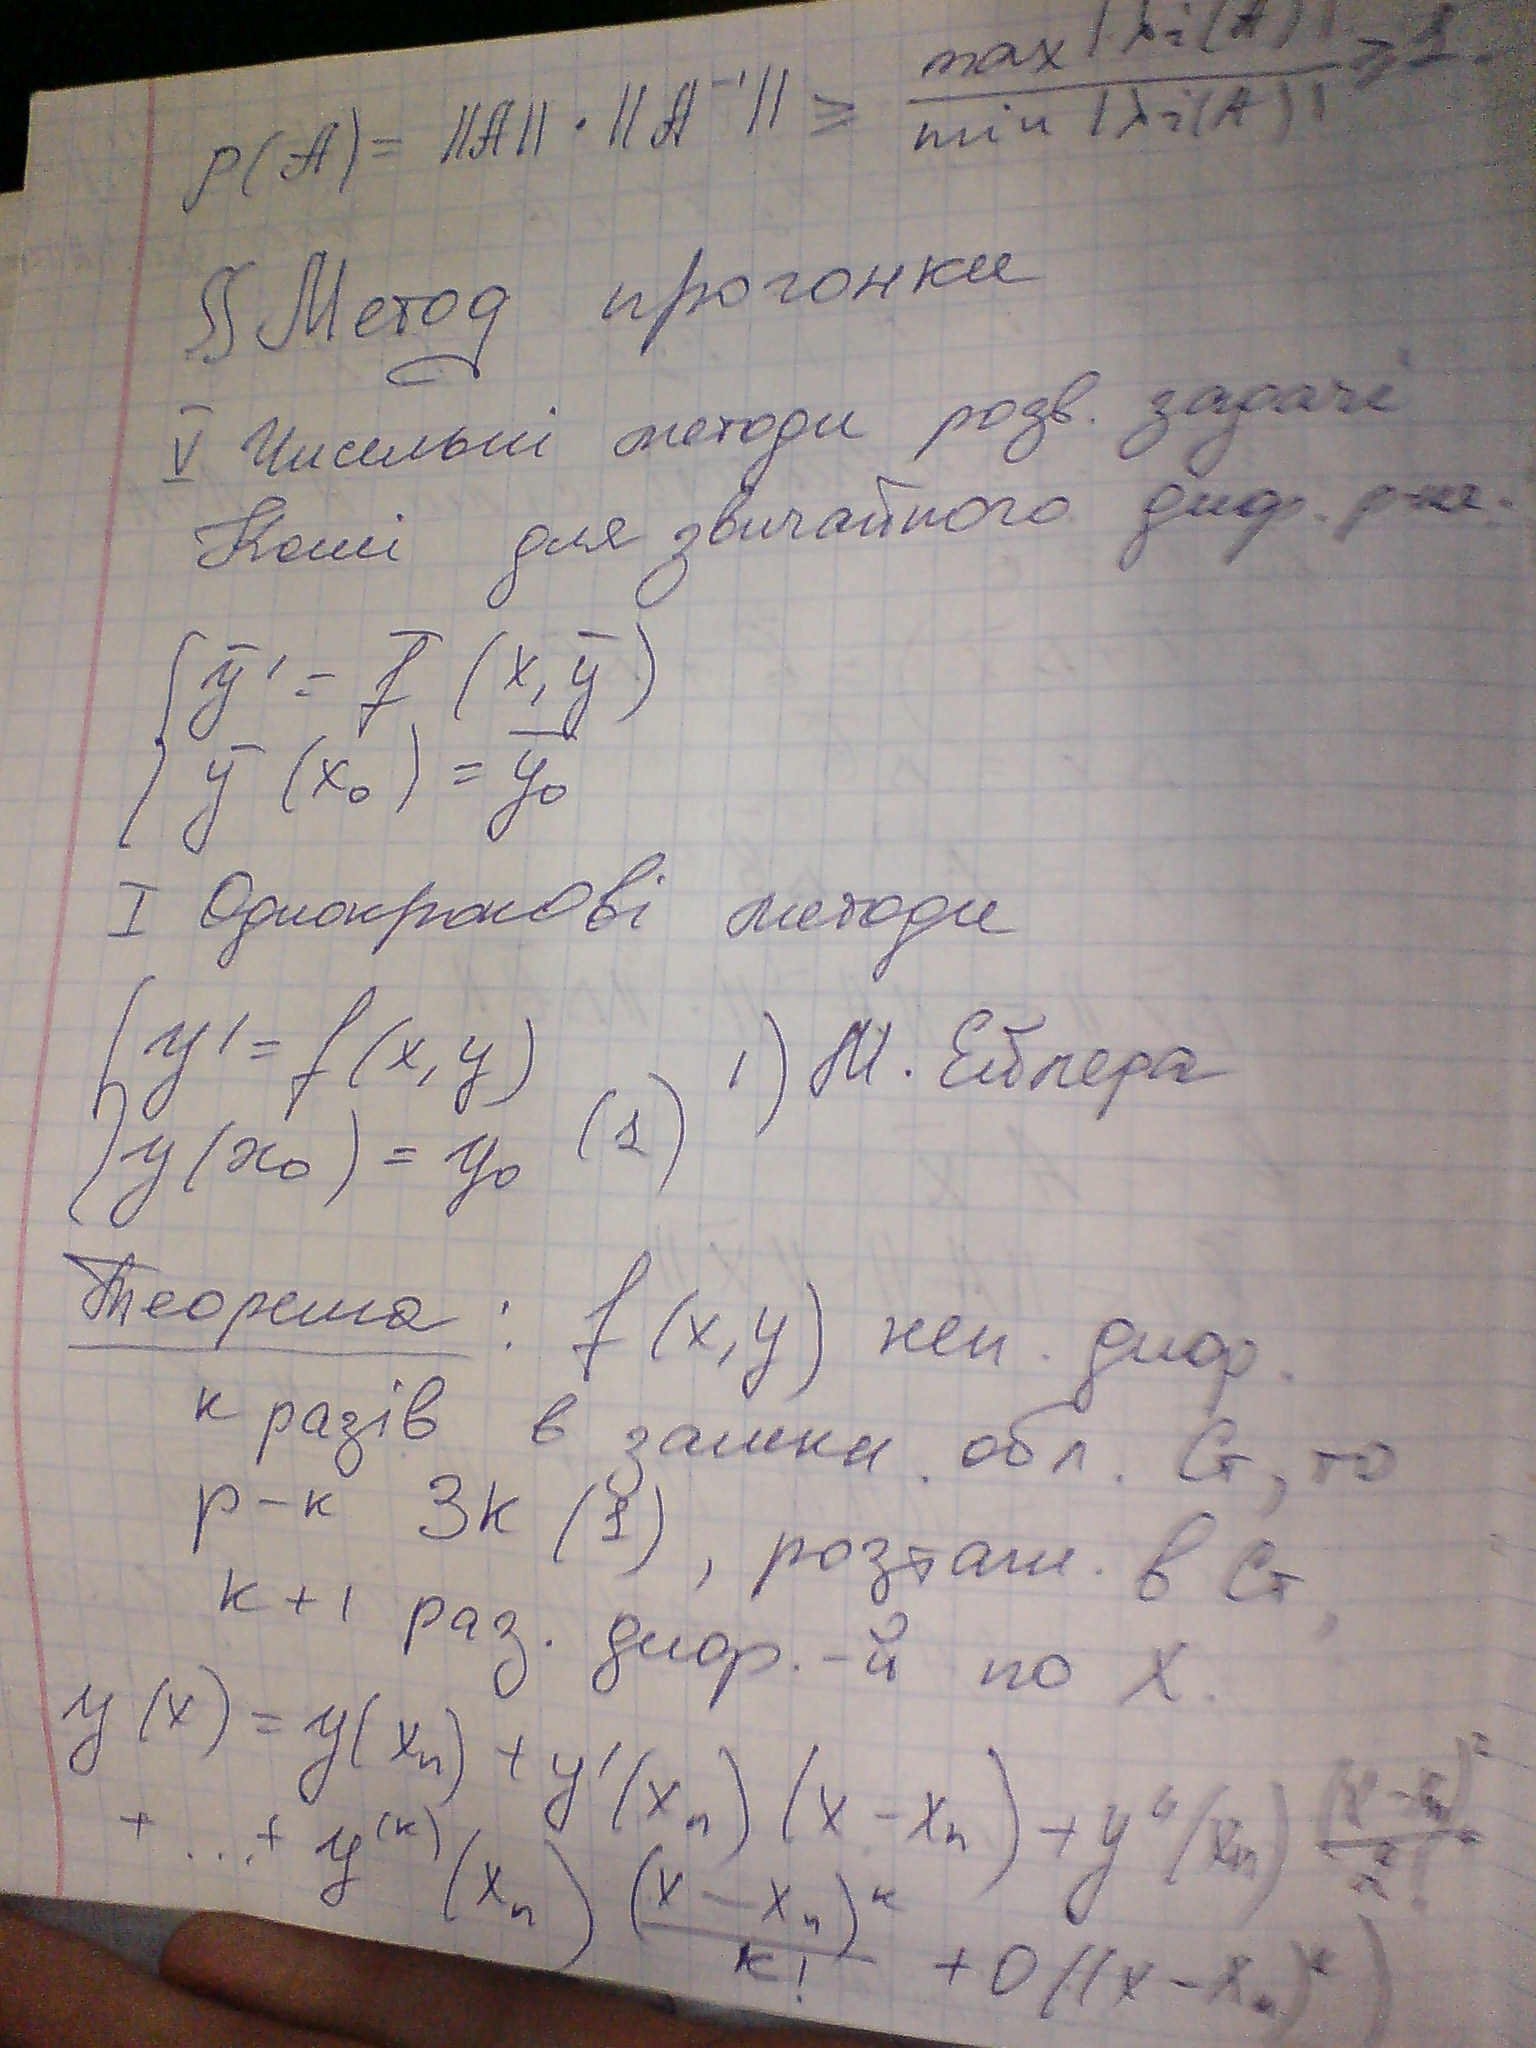 p(A) = ||A|| · ||A⁻¹|| ≥ max |λi(A)| / min |λi(A)| ≥ 1.
§ Метод прогонки
V Чисельні методи розв. задачі
Коші для звичайного диф. р-ня:
{ ȳ' = f̄ (x, ȳ)
ȳ (x₀) = ȳ₀
I Однокрокові методи
{ y' = f(x, y)
y(x₀) = y₀ (1) 1) М. Ейлера
Теорема: f(x, y) неп. диф.
k разів в замкн. обл. G, то
р-к ЗК (1), розташ. в G,
k+1 раз. диф.-й по X.
y(x) = y(xₙ) + y'(xₙ)(x - xₙ) + y''(xₙ) (x - xₙ)²/2! +
+ ... + y⁽ᵏ⁾(xₙ) (x - xₙ)ᵏ/k! + O((x - xₙ)ᵏ)